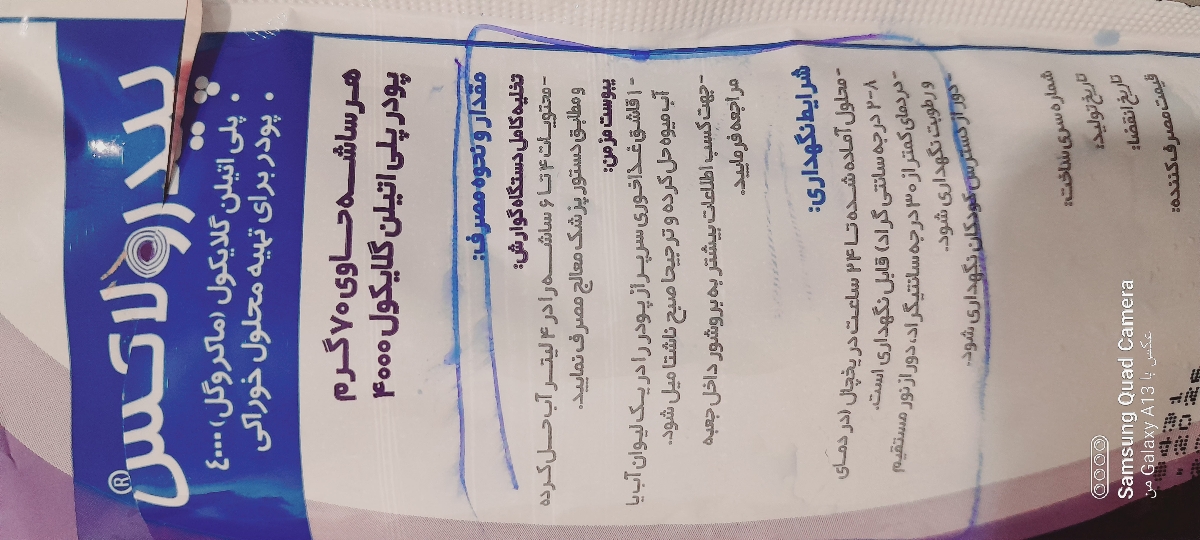 سدرولاکس®
• پلی اتیلن گلایکول (ماکروگل) ٤٠٠٠
• پودر برای تهیه محلول خوراکی
هر ساشه حاوی ۷۰ گرم
پودر پلی اتیلن گلایکول ۴۰۰۰
مقدار و نحوه مصرف:
تخلیه کامل دستگاه گوارش:
- محتویات ۴ تا ۶ ساشه را در ۴ لیتر آب حل کرده
و مطابق دستور پزشک معالج مصرف نمایید.
یبوست مزمن:
- ۱ قاشق غذاخوری سر پر از پودر را در یک لیوان آب یا
آب میوه حل کرده و ترجیحا صبح ناشتا میل شود.
-جهت کسب اطلاعات بیشتر به بروشور داخل جعبه
مراجعه فرمایید.
شرایط نگهداری:
-محلول آماده شده تا ۲۴ ساعت در یخچال (در دمای
۸-۲ درجه سانتی گراد) قابل نگهداری است.
-در دمای کمتر از ۳۰ درجه سانتیگراد، دور از نور مستقیم
و رطوبت نگهداری شود.
-دور از دسترس کودکان نگهداری شود.
شماره سری ساخت:
تاریخ تولید:
تاریخ انقضا:
قیمت مصرف کننده:
Samsung Quad Camera
عکس با Galaxy A13 من